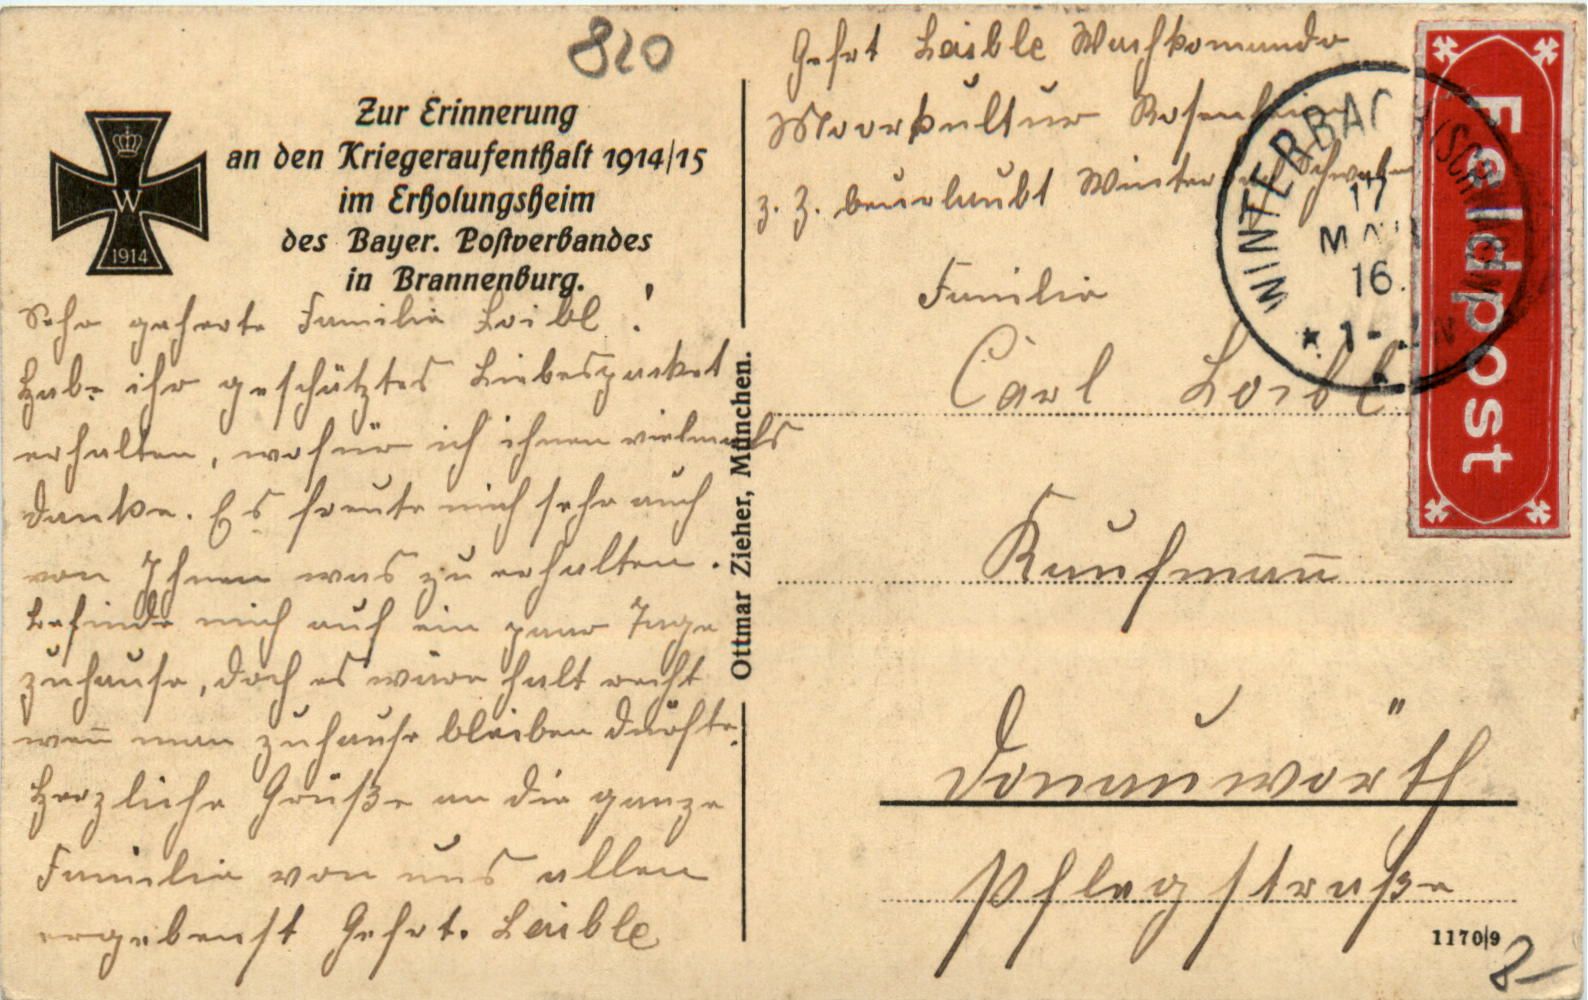 820
Zur Erinnerung
an den Kriegeraufenthalt 1914/15
im Erholungsheim
des Bayer. Postverbandes
in Brannenburg.
W
1914
Sehr geherte Familie Loibl!
Habe ihr geschätztes Liebespacket
erhalten, wofür ich ihnen vielmals
danke. Es freute mich sehr auch
von Ihnen was zu erhalten.
Befinde mich auf ein paar Tage
zuhause, doch es wäre halt recht
wen̅ man zuhause bleiben dürfte.
Herzliche Grüße an die ganze
Familie von uns allen
ergebenst Gefrt. Laible
Ottmar Zieher, München.
Gefrt Laible Wachkomando
Moorkultur Rosenheim
z. Z. beurlaubt Winterbach Schwaben
WINTERBACH
17
MAI
16.
Feldpost
Familie
Carl Loibl
Kaufman̅
Donauwörth
Pflegstraße
1170/9